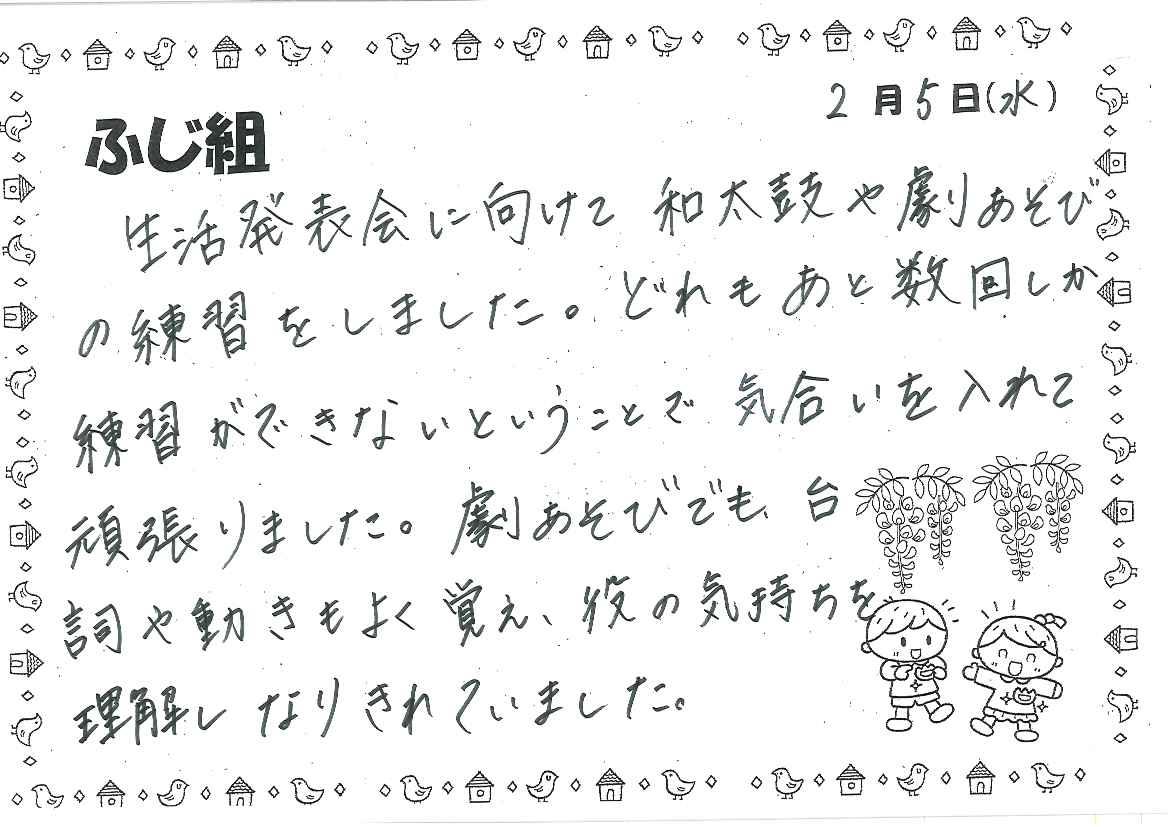 2月5日(水)
ふじ組
生活発表会に向けて 和太鼓や劇あそび
の練習をしました。どれもあと数回しか
練習ができないということで 気合いを入れて
頑張りました。劇あそびでも、台
詞や動きもよく覚え、役の気持ちを
理解し なりきれていました。